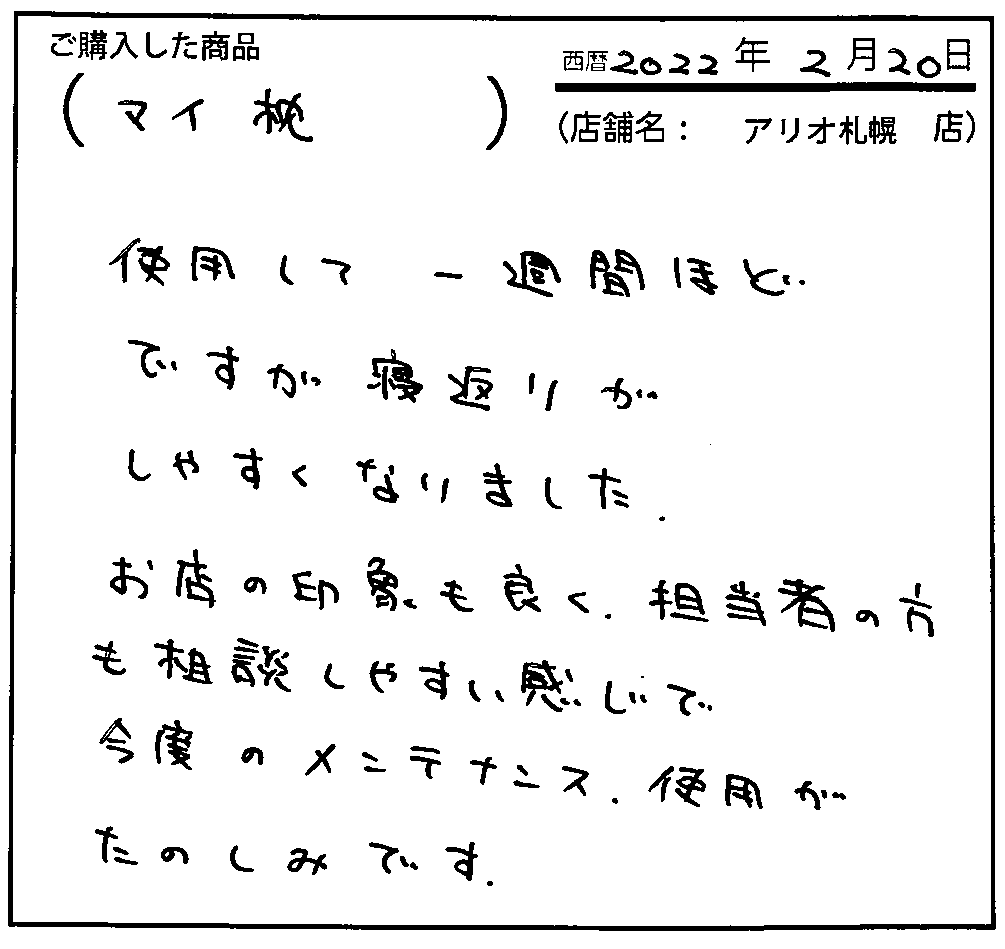 ご購入した商品
西暦2022年2月20日
(マイ枕)
(店舗名: アリオ札幌 店)
使用して一週間ほど
ですが寝返りが
しやすくなりました.
お店の印象も良く.担当者の方
も相談しやすい感じで
今度のメンテナンス.使用が
たのしみです.